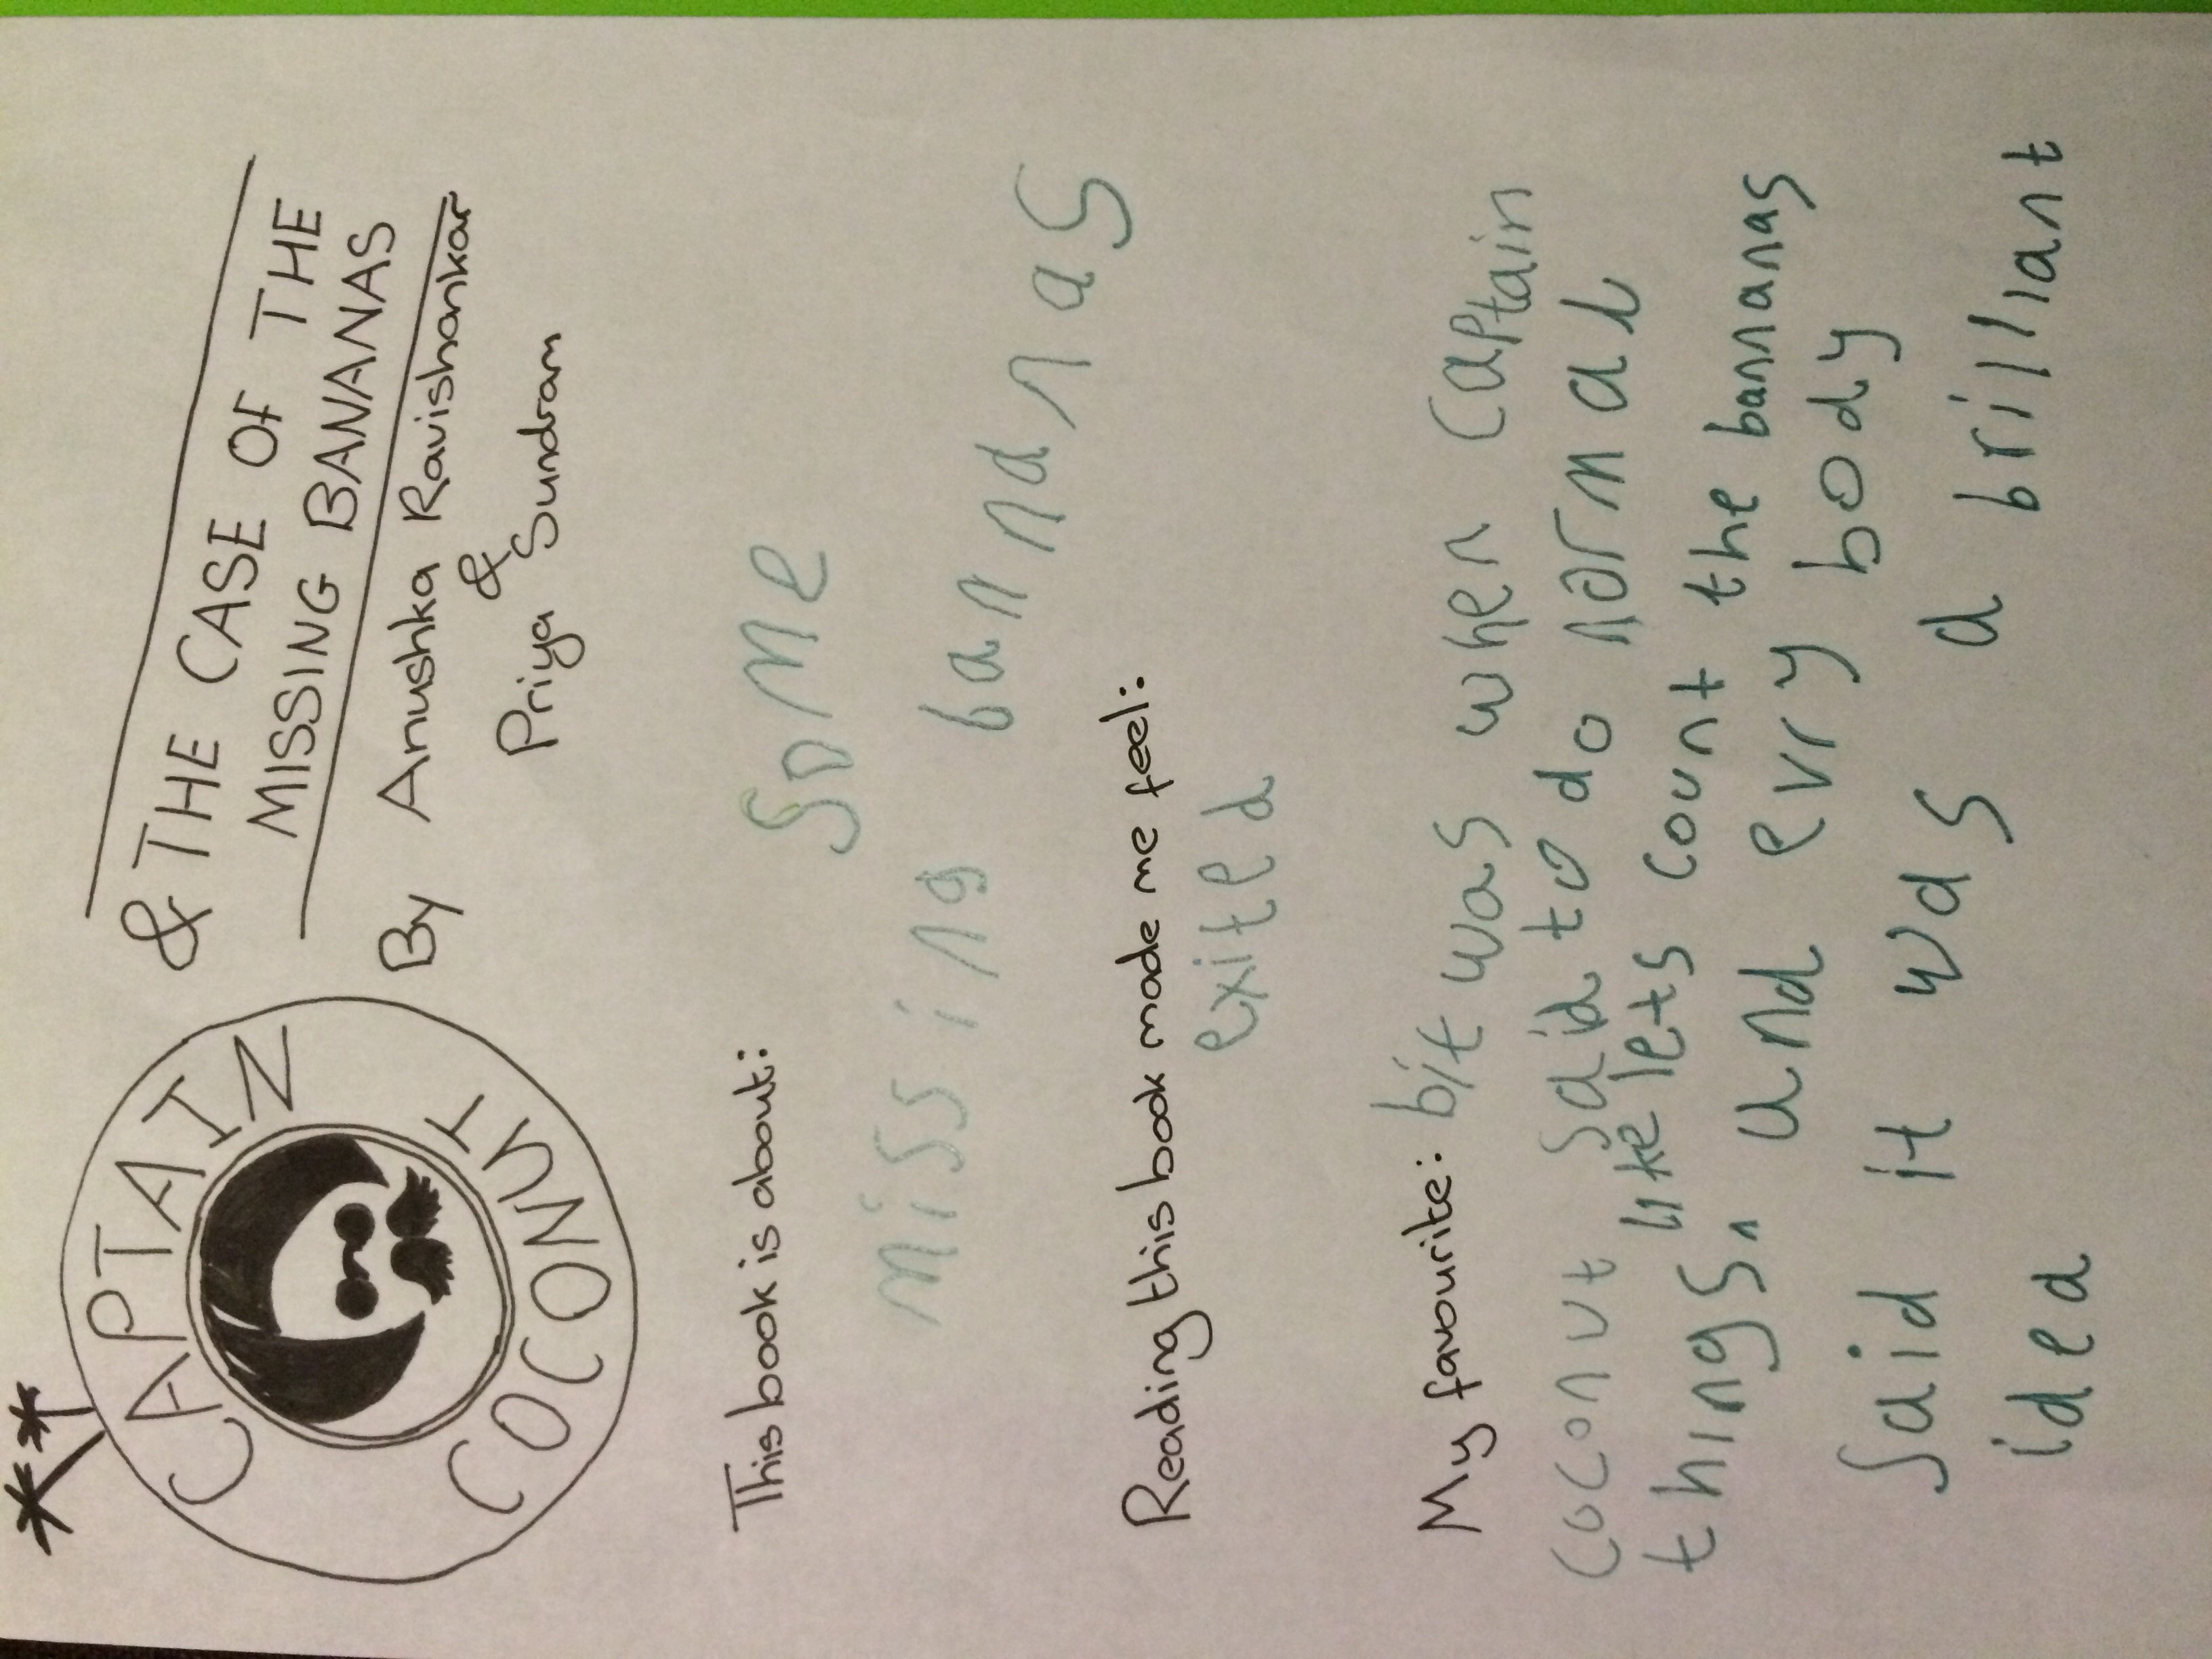 CAPTAIN
COCONUT
& THE CASE OF THE
MISSING BANANAS
By Anushka Ravishankar
&
Priya Sundram
This book is about: some
missing bannanas
Reading this book made me feel:
exited
My favourite: bit was when Captain
coconut said to do normal
things, like lets count the bannanas
and evry body
said it was a brilliant
idea